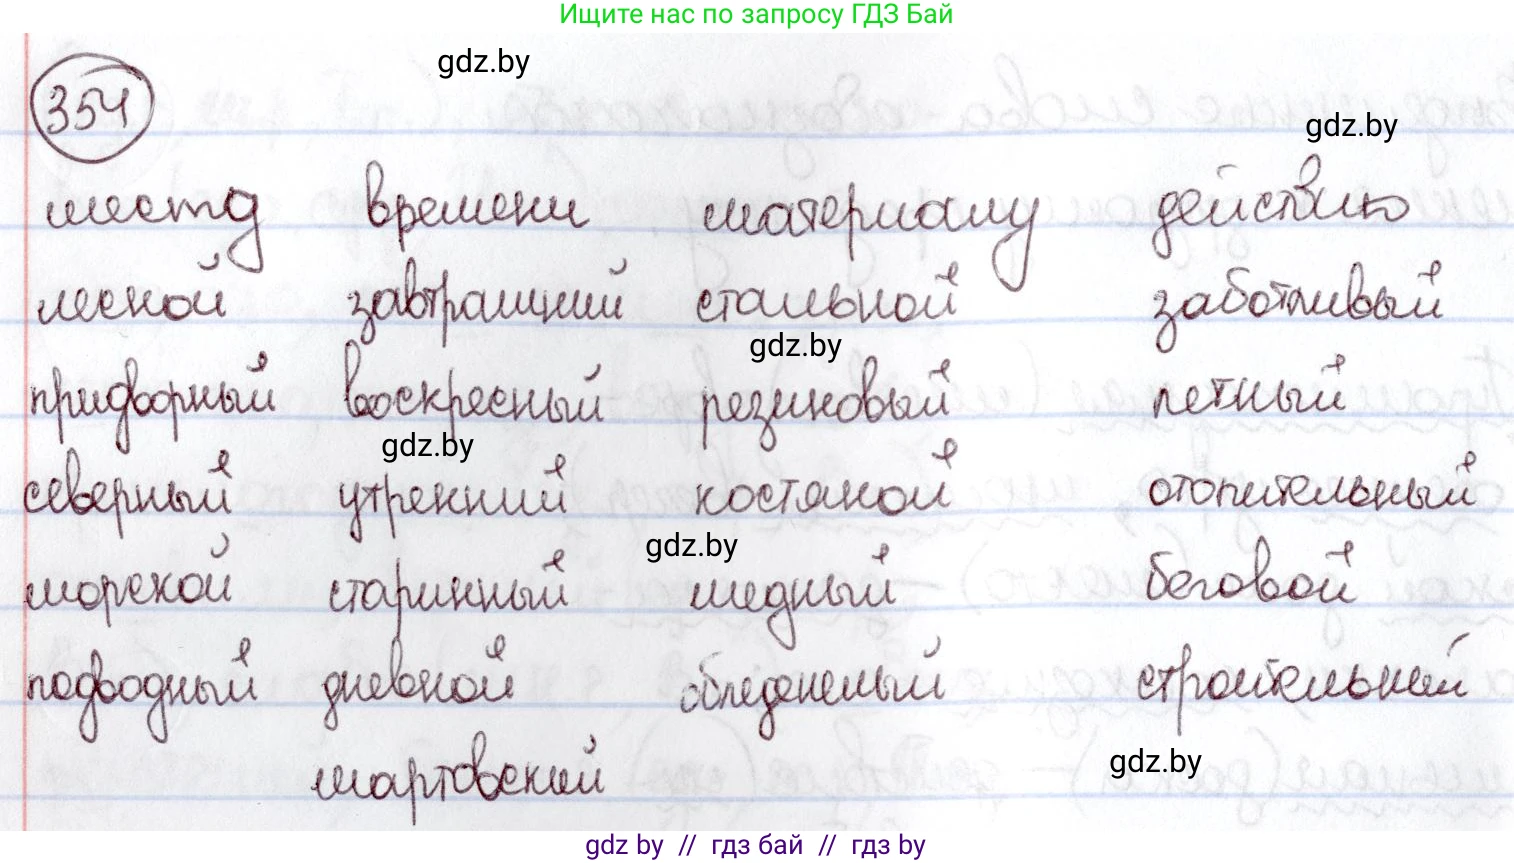 Ищите нас по запросу ГДЗ Бай
gdz.by
354
gdz.by
месту времени материалу действию
лесной завтрашний стальной заботливый
gdz.by
придворный воскресный резиновый летный
gdz.by
северный утренний костяной отопительный
gdz.by
морской старинный медный беговой
подводный дневной обледенелый строительный
мартовский
gdz.by
gdz by // гдз бай // гдз by